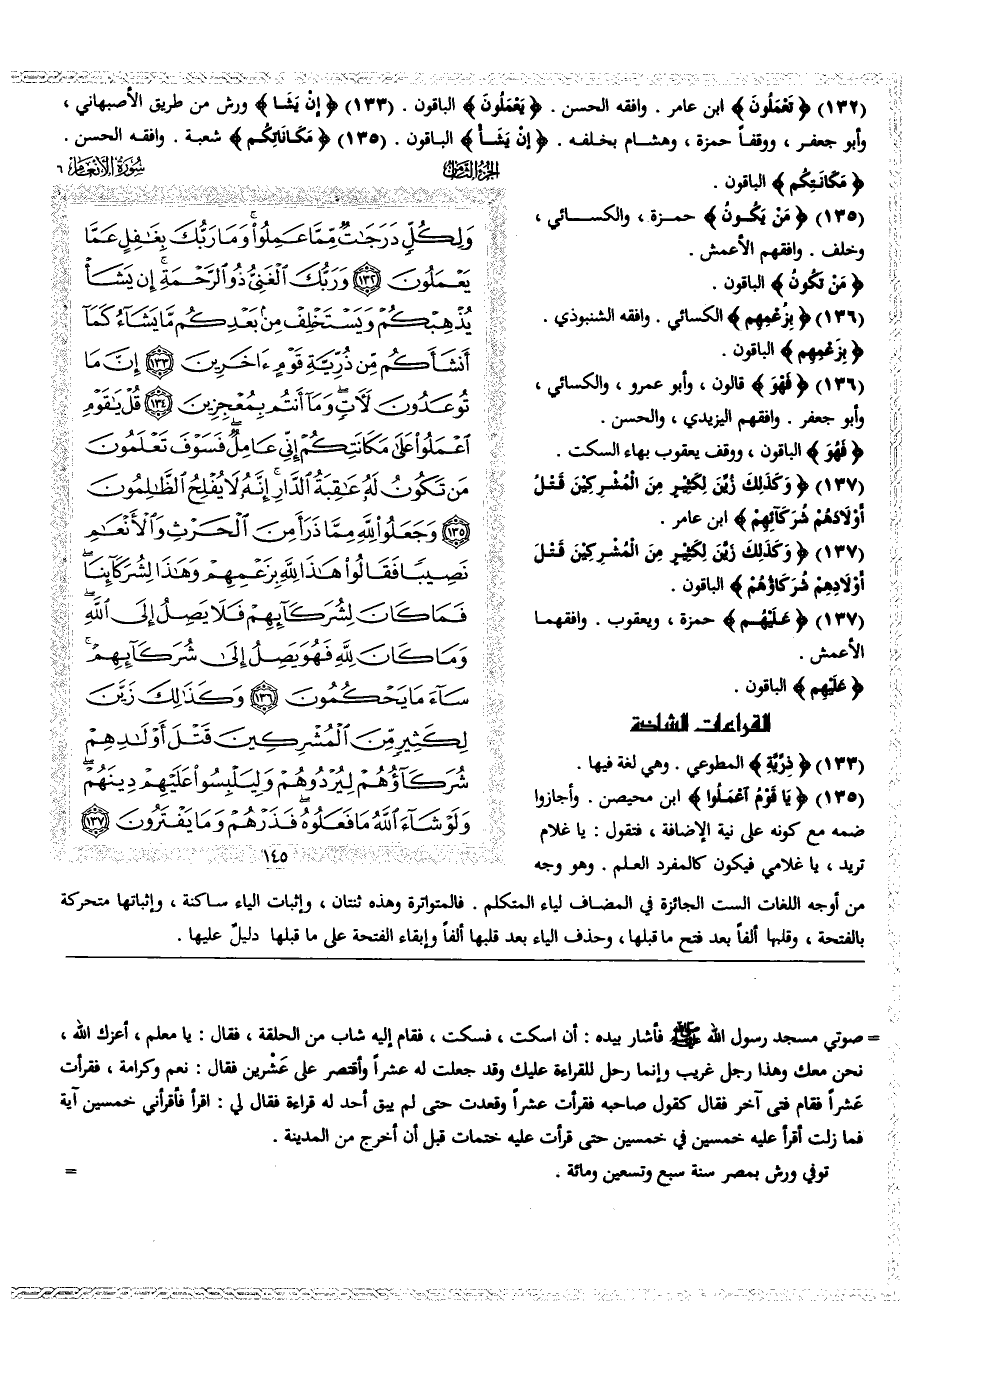 (١٣٢) ﴿ تَعْمَلُونَ ﴾ ابن عامر . وافقه الحسن . ﴿ يَعْمَلُونَ ﴾ الباقون . (١٣٣) ﴿ إِنْ يَشَا ﴾ ورش من طريق الأصبهاني ،
وأبو جعفر ، ووقفاً حمزة ، وهشام بخلفه . ﴿ إِنْ يَشَأْ ﴾ الباقون . (١٣٥) ﴿ مَكَانَاتِكُم ﴾ شعبة . وافقه الحسن .
﴿ مَكَانَتِكُم ﴾ الباقون .
(١٣٥) ﴿ مَنْ يَكُونُ ﴾ حمزة ، والكسائي ،
وخلف . وافقهم الأعمش .
﴿ مَنْ تَكُونُ ﴾ الباقون .
(١٣٦) ﴿ بِزُعْمِهِم ﴾ الكسائي . وافقه الشنبوذي .
﴿ بِزَعْمِهِم ﴾ الباقون .
(١٣٦) ﴿ فَهْوَ ﴾ قالون ، وأبو عمرو ، والكسائي ،
وأبو جعفر . وافقهم اليزيدي ، والحسن .
﴿ فَهُوَ ﴾ الباقون ، ووقف يعقوب بهاء السكت .
(١٣٧) ﴿ وَكَذَلِكَ زُيِّنَ لِكَثِيرٍ مِنَ الْمُشْرِكِينَ قَتْلُ
أَوْلَادَهُمْ شُرَكَآئِهِمْ ﴾ ابن عامر .
(١٣٧) ﴿ وَكَذَلِكَ زَيَّنَ لِكَثِيرٍ مِنَ الْمُشْرِكِينَ قَتْلَ
أَوْلَادِهِمْ شُرَكَاؤُهُمْ ﴾ الباقون .
(١٣٧) ﴿ عَلَيْهُم ﴾ حمزة ، ويعقوب . وافقهما
الأعمش .
﴿ عَلَيْهِم ﴾ الباقون .
القراءات الشاذة
(١٣٣) ﴿ ذِرِّيَّةِ ﴾ المطوعي . وهي لغة فيها .
(١٣٥) ﴿ يَا قَوْمُ اعْمَلُوا ﴾ ابن محيصن . وأجازوا
ضمه مع كونه على نية الإضافة ، فتقول : يا غلام
تريد ، يا غلامي فيكون كالمفرد العلم . وهو وجه
الجزء الثامن
سورة الأنعام ٦
وَلِكُلٍّ دَرَجَٰتٌ مِّمَّا عَمِلُوا۟ وَمَا رَبُّكَ بِغَٰفِلٍ عَمَّا
يَعْمَلُونَ ١٣٢ وَرَبُّكَ ٱلْغَنِىُّ ذُو ٱلرَّحْمَةِ إِن يَشَأْ
يُذْهِبْكُمْ وَيَسْتَخْلِفْ مِنۢ بَعْدِكُم مَّا يَشَآءُ كَمَآ
أَنشَأَكُم مِّن ذُرِّيَّةِ قَوْمٍ ءَاخَرِينَ ١٣٣ إِنَّ مَا
تُوعَدُونَ لَءَاتٍ وَمَآ أَنتُم بِمُعْجِزِينَ ١٣٤ قُلْ يَٰقَوْمِ
ٱعْمَلُوا۟ عَلَىٰ مَكَانَتِكُمْ إِنِّى عَامِلٌ فَسَوْفَ تَعْلَمُونَ
مَن تَكُونُ لَهُۥ عَٰقِبَةُ ٱلدَّارِ إِنَّهُۥ لَا يُفْلِحُ ٱلظَّٰلِمُونَ
١٣٥ وَجَعَلُوا۟ لِلَّهِ مِمَّا ذَرَأَ مِنَ ٱلْحَرْثِ وَٱلْأَنْعَٰمِ
نَصِيبًا فَقَالُوا۟ هَٰذَا لِلَّهِ بِزَعْمِهِمْ وَهَٰذَا لِشُرَكَآئِنَا
فَمَا كَانَ لِشُرَكَآئِهِمْ فَلَا يَصِلُ إِلَى ٱللَّهِ
وَمَا كَانَ لِلَّهِ فَهُوَ يَصِلُ إِلَىٰ شُرَكَآئِهِمْ
سَآءَ مَا يَحْكُمُونَ ١٣٦ وَكَذَٰلِكَ زَيَّنَ
لِكَثِيرٍ مِّنَ ٱلْمُشْرِكِينَ قَتْلَ أَوْلَٰدِهِمْ
شُرَكَآؤُهُمْ لِيُرْدُوهُمْ وَلِيَلْبِسُوا۟ عَلَيْهِمْ دِينَهُمْ
وَلَوْ شَآءَ ٱللَّهُ مَا فَعَلُوهُ فَذَرْهُمْ وَمَا يَفْتَرُونَ ١٣٧
١٤٥
من أوجه اللغات الست الجائزة في المضاف لياء المتكلم . فالمتواترة وهذه ثنتان ، وإثبات الياء ساكنة ، وإثباتها متحركة
بالفتحة ، وقلبها ألفاً بعد فتح ما قبلها ، وحذف الياء بعد قلبها ألفاً وإبقاء الفتحة على ما قبلها دليلٌ عليها .
= صوتي مسجد رسول الله ﷺ فأشار بيده : أن اسكت ، فسكت ، فقام إليه شاب من الحلقة ، فقال : يا معلم ، أعزك الله ،
نحن معك وهذا رجل غريب وإنما رحل للقراءة عليك وقد جعلت له عشراً وأقتصر على عَشْرين فقال : نعم وكرامة ، فقرأت
عَشراً فقام فتى آخر فقال كقول صاحبه فقرأت عشراً وقعدت حتى لم يبق أحد له قراءة فقال لي : اقرأ فأقرأني خمسين آية
فما زلت أقرأ عليه خمسين في خمسين حتى قرأت عليه ختمات قبل أن أخرج من المدينة .
توفي ورش بمصر سنة سبع وتسعين ومائة . =